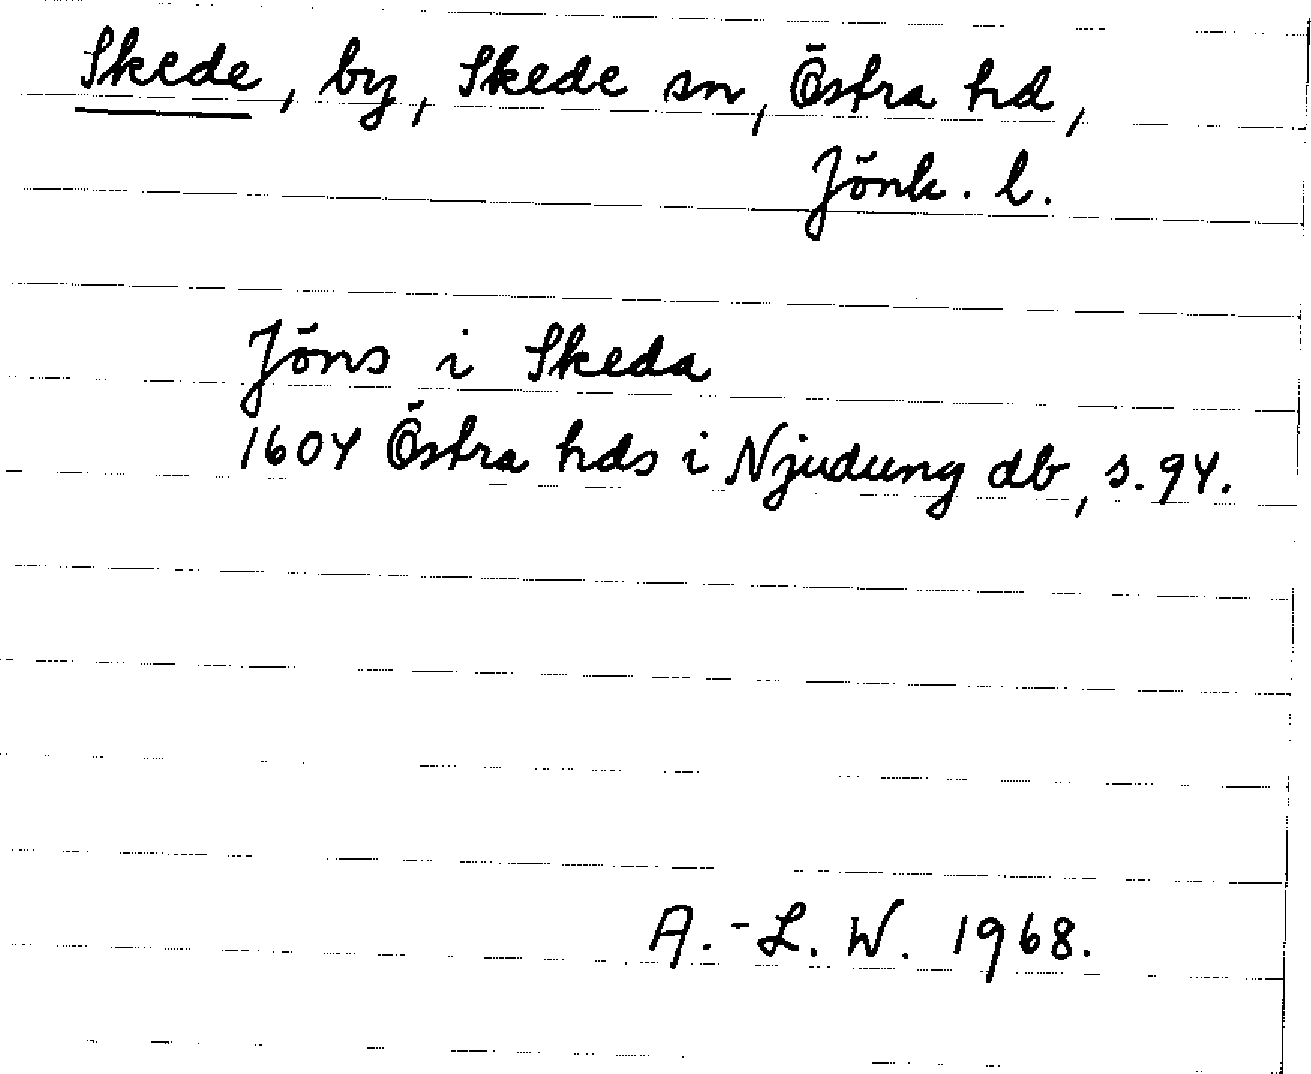 Skede, by, Skede sn, Östra hd,
Jönk. l.
Jöns i Skeda
1604 Östra hds i Njudung db, s. 94.
A.-L. W. 1968.